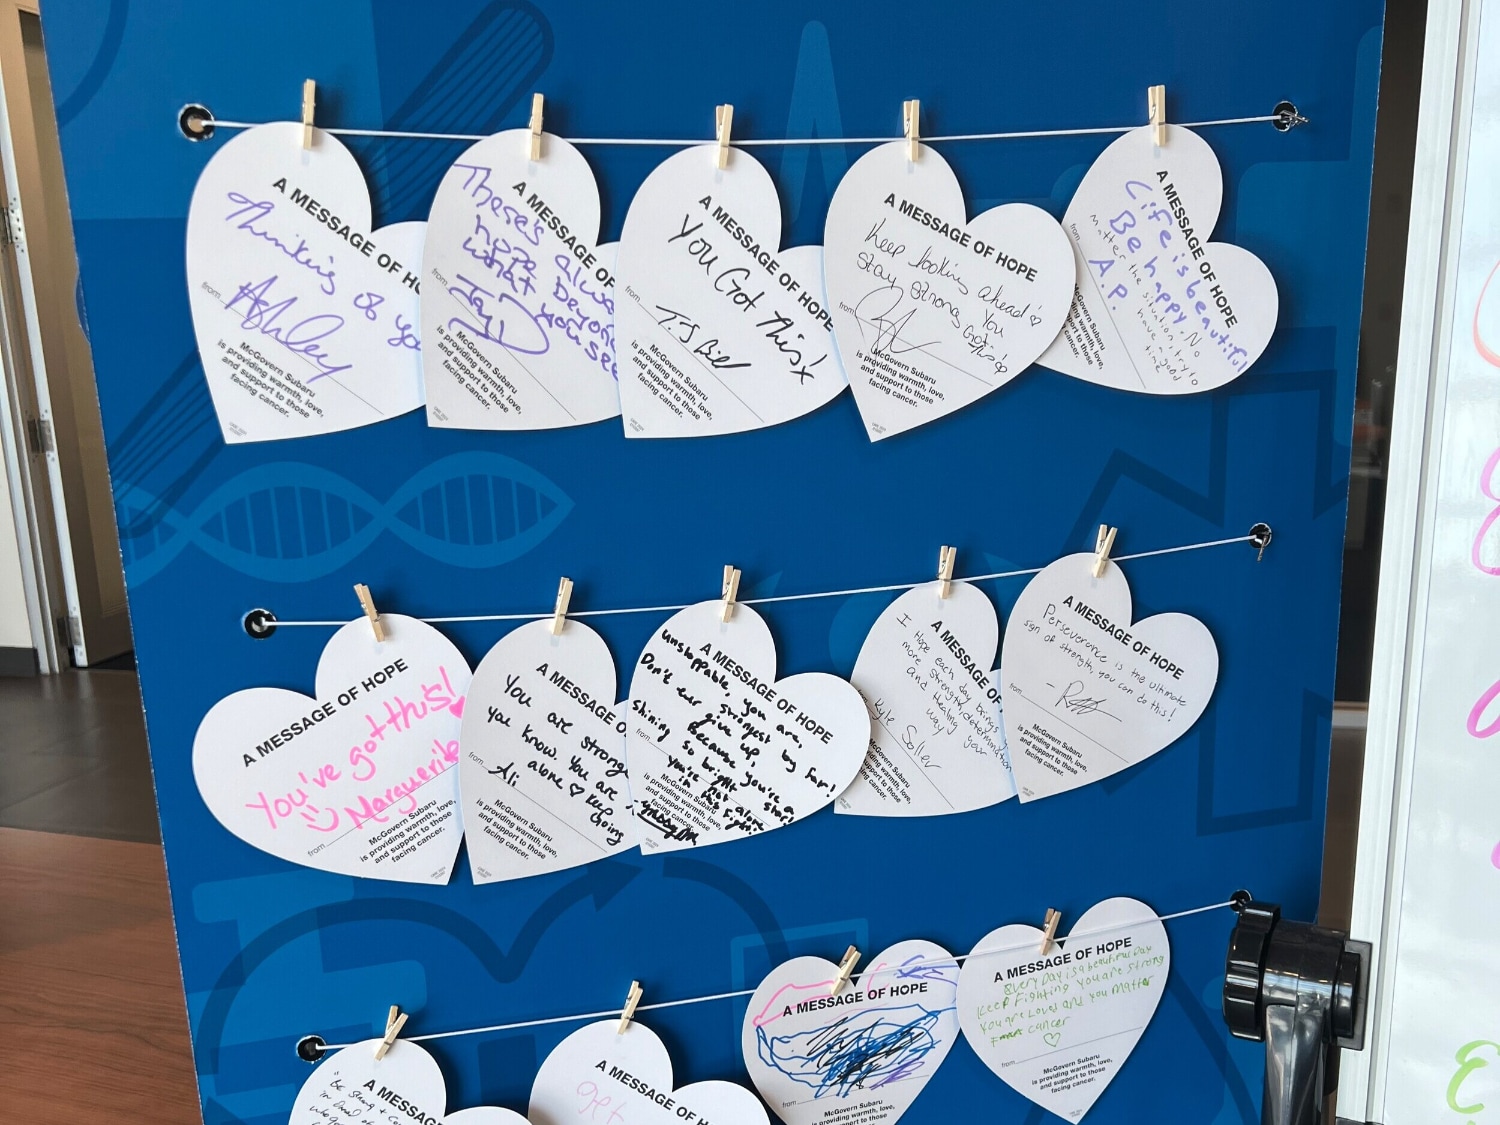 A MESSAGE OF HO
Thinking of yo
from
Ashley
McGovern Subaru
is providing warmth, love,
and support to those
facing cancer.
A MESSAGE OF
There's
hope always
what beyon
you see
from
McGovern Subaru
is providing warmth, love,
and support to those
facing cancer.
A MESSAGE OF HOPE
You Got This!
from
T.J Bell
McGovern Subaru
is providing warmth, love,
and support to those
facing cancer.
A MESSAGE OF HOPE
Keep looking ahead ♡
Stay strong You
Got this!
from
McGovern Subaru
is providing warmth, love,
and support to those
facing cancer.
A MESSAGE OF HOPE
Life is beautiful
Be happy. No
matter the situation, try to
have a good
time
A.P.
from
McGovern Subaru
is providing warmth, love,
and support to those
facing cancer.
A MESSAGE OF HOPE
You've got this!
Marguerite
from
McGovern Subaru
is providing warmth, love,
and support to those
facing cancer.
A MESSAGE O
You are stronge
you know. You are
alone ♡ keep
going
from
Ali
McGovern Subaru
is providing warmth, love,
and support to those
facing cancer.
A MESSAGE OF HOPE
Unstoppable, you are,
strongest by far!
Don't ever give up,
Because you're a
shining so bright star!
you're not alone
in this fight!
from
McGovern Subaru
is providing warmth, love,
and support to those
facing cancer.
A MESSAGE OF
I Hope each day brings
more strength, determination
and Healing your
way
Kyle Soller
McGovern Subaru
is providing warmth, love,
and support to those
facing cancer.
A MESSAGE OF HOPE
Perseverance is the ultimate
sign of strength, you can do this!
from
McGovern Subaru
is providing warmth, love,
and support to those
facing cancer.
A MESSAGE
"Be strong + co
A MESSAGE OF H
get
A MESSAGE OF HOPE
from
McGovern Subaru
is providing warmth, love,
and support to those
A MESSAGE OF HOPE
Every Day is a beautiful Day
Keep Fighting You are strong
You are Loved and you matter
cancer
♡
from
McGovern Subaru
is providing warmth, love,
and support to those
facing cancer.